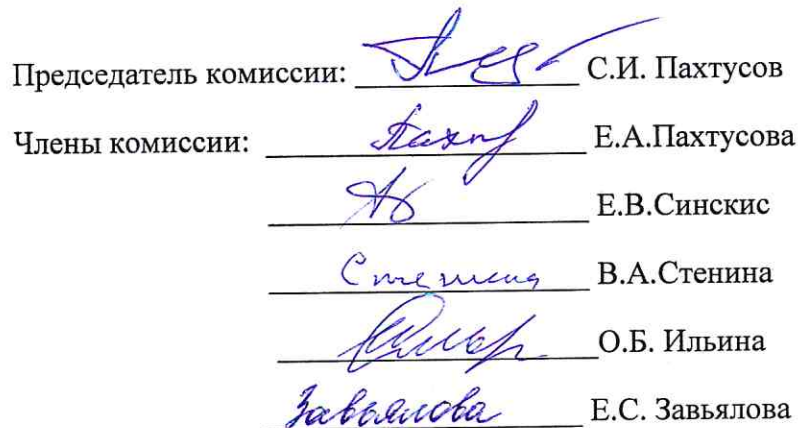 Председатель комиссии: С.И. Пахтусов
Члены комиссии: Пахт Е.А.Пахтусова
Е.В.Синскис
Стенина В.А.Стенина
О.Б. Ильина
Завьялова Е.С. Завьялова